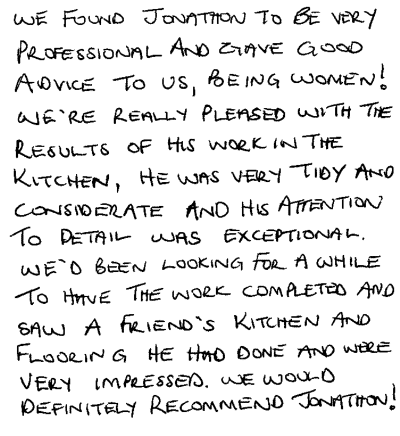 WE FOUND JONATHON TO BE VERY
PROFESSIONAL AND GAVE GOOD
ADVICE TO US, BEING WOMEN!
WE'RE REALLY PLEASED WITH THE
RESULTS OF HIS WORK IN THE
KITCHEN, HE WAS VERY TIDY AND
CONSIDERATE AND HIS ATTENTION
TO DETAIL WAS EXCEPTIONAL.
WE'D BEEN LOOKING FOR A WHILE
TO HAVE THE WORK COMPLETED AND
SAW A FRIEND'S KITCHEN AND
FLOORING HE HAD DONE AND WERE
VERY IMPRESSED. WE WOULD
DEFINITELY RECOMMEND JONATHON!